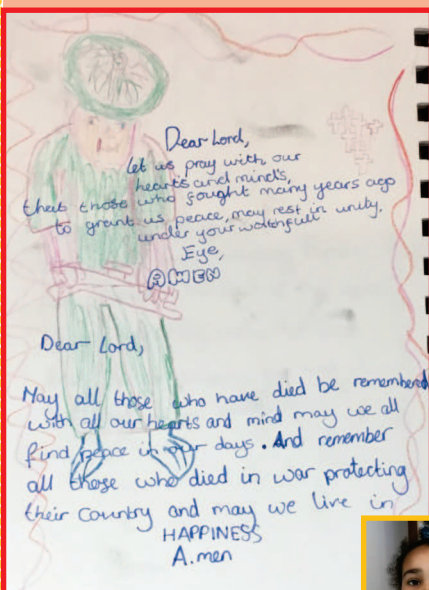 Dear Lord,
let us pray with our
hearts and minds,
that those who fought many years ago
to grant us peace, may rest in unity,
under your watchfull
Eye,
AMEN
Dear Lord,
May all those who have died be remembered
with all our hearts and mind may we all
find peace in our days. And remember
all those who died in war protecting
their Country and may we live in
HAPPINESS
A.men